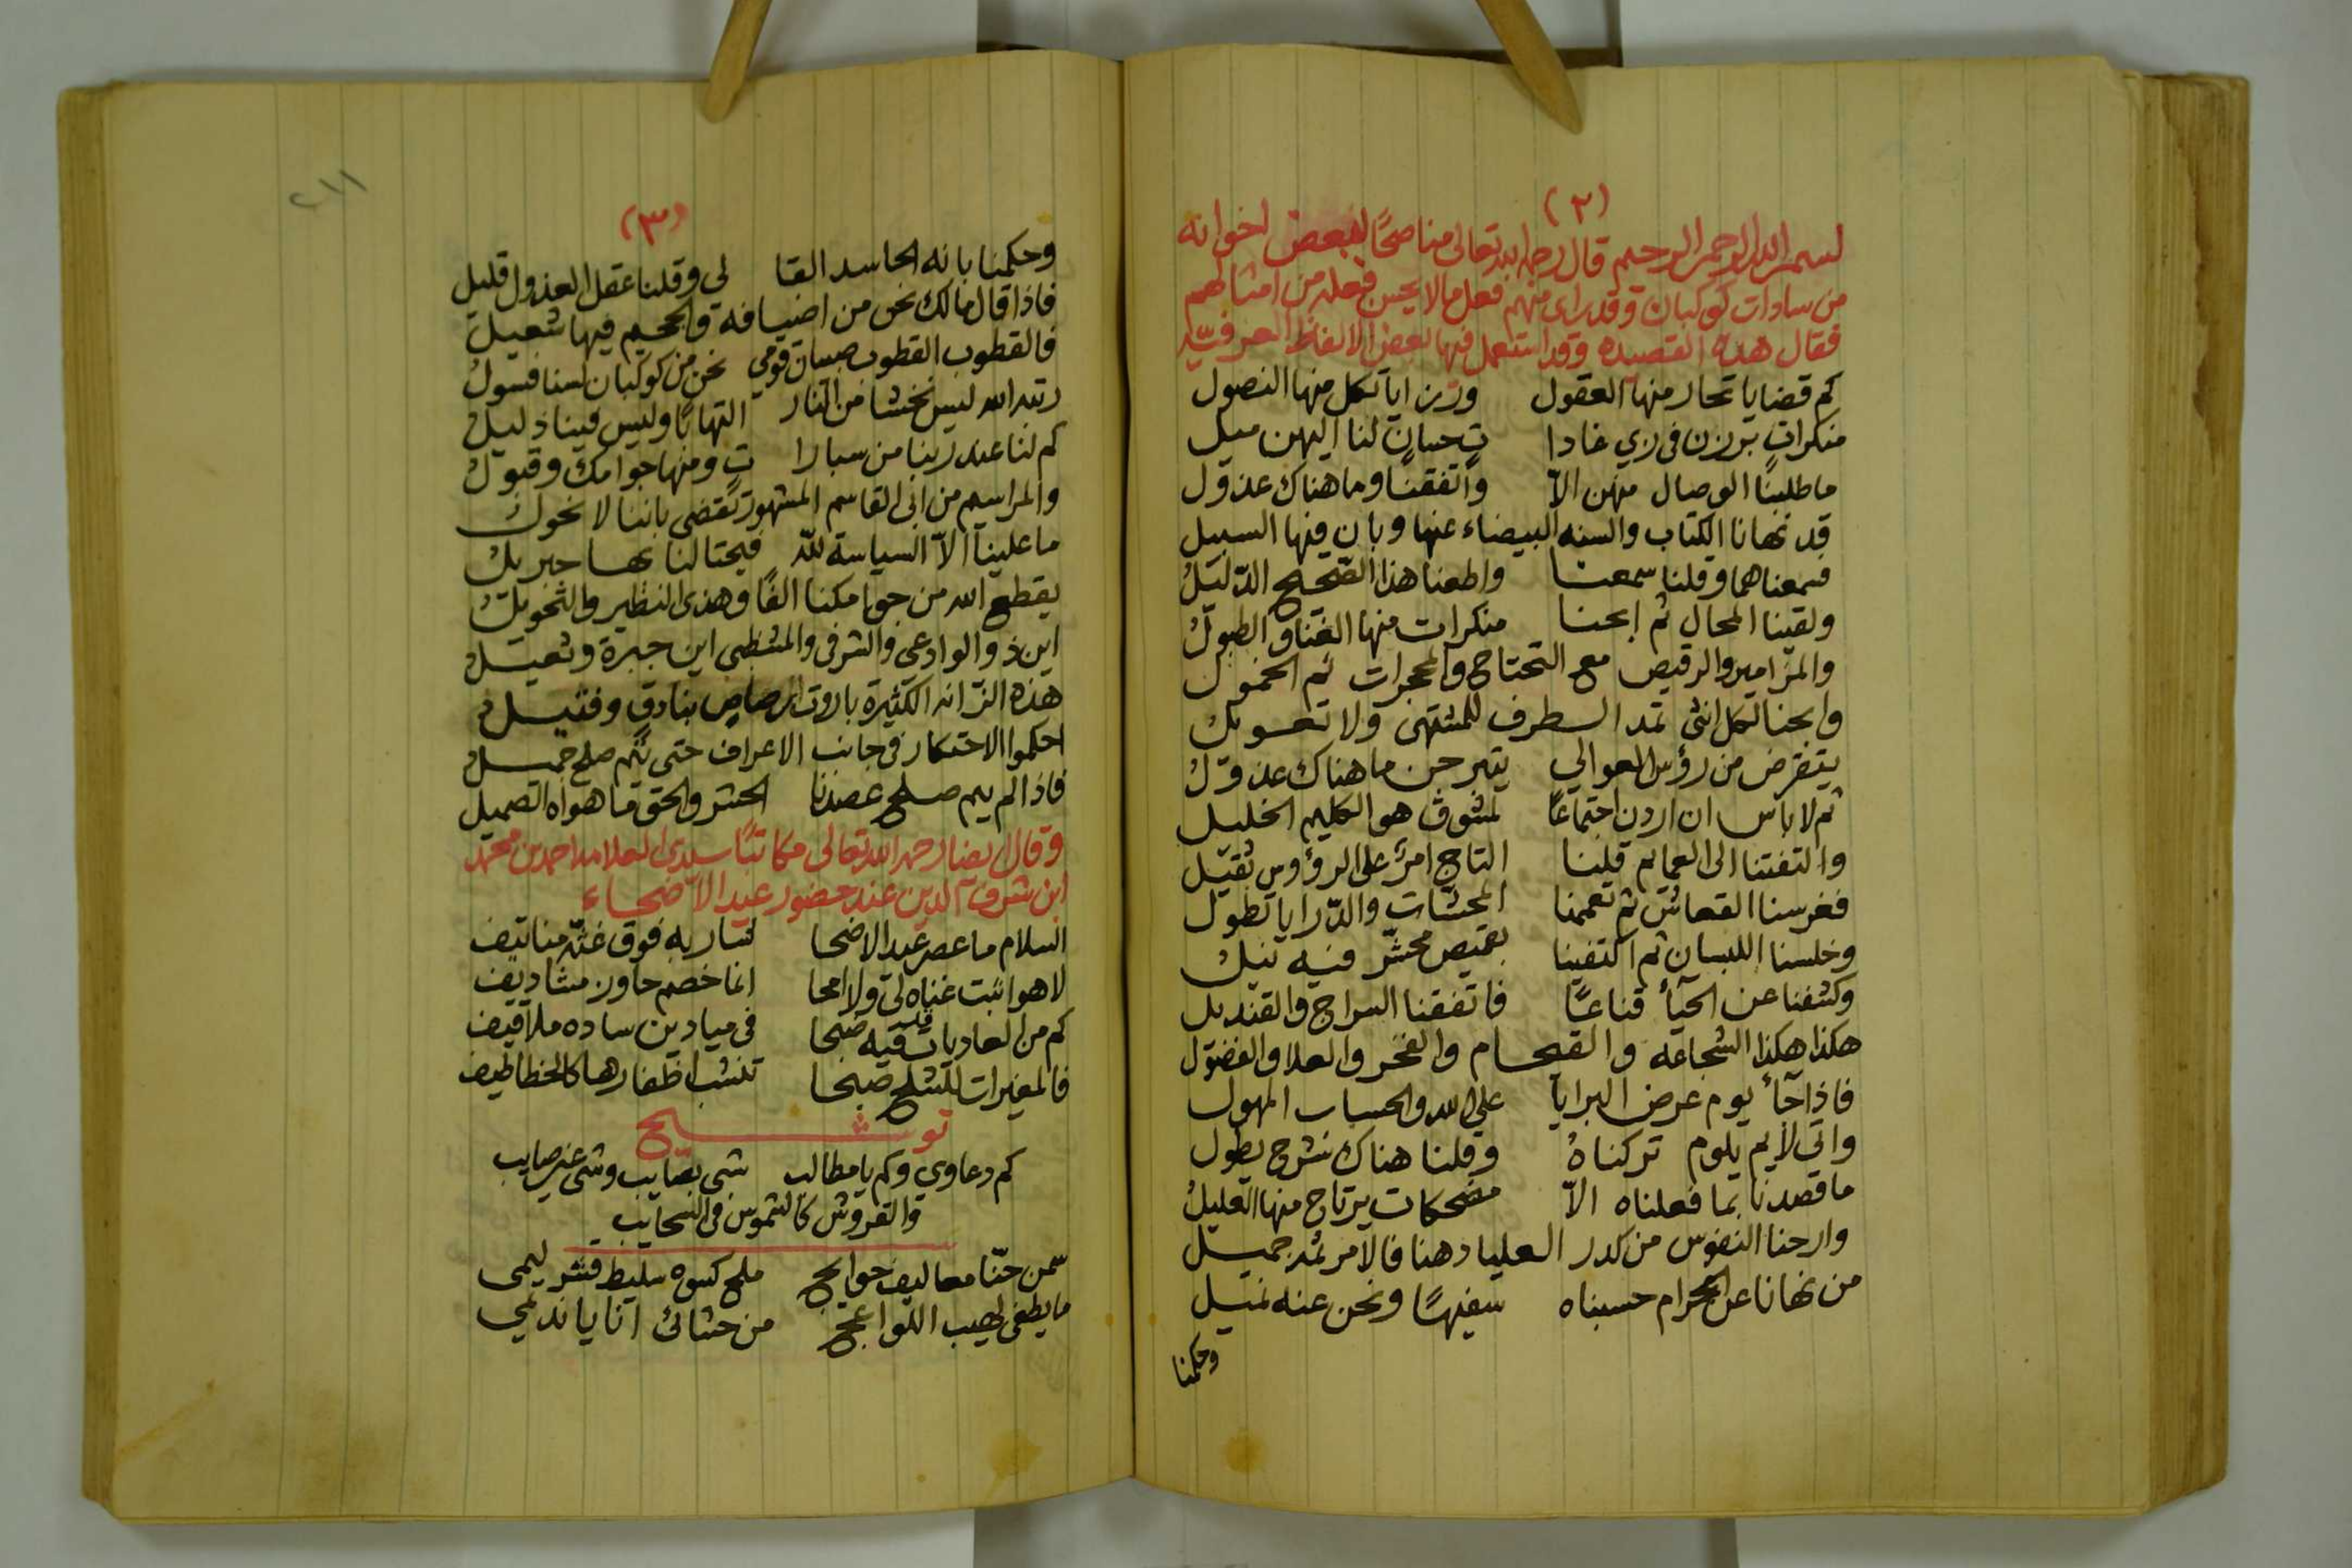 (٢)
بسم الله الرحمن الرحيم قال رحمه الله تعالى مناصحًا لبعض اخوانه
من سادات كوكبان وقد راى منهم فعل مالا يحسن فعله من امثالهم
فقال هذه القصيده وقد استعمل فيها بعض الالفاظ العرفيّه
كم قضايا تحار منها العقول وزن اياتكل منها النصول
منكرات برزن في زي غادا تٍ حسانٍ لنا اليهن ميل
ما طلبنا الوصال منهن الاّ واتفقنا وما هناك عذول
قد نهانا الكتاب والسنه البيضاء عنها وبان فيها السبيل
فسمعناهما وقلنا سمعنا واطعنا هذا الصّحيح الدّليل
ولقينا المحال ثم ابحنا منكرات منها الغنا والطبول
والمزامير والرقيص مع التحتاح والمجرات ثم الخمول
وابحنا لكل انثى تمد الطرف للمشتهى ولا تعويل
يتفرض من رؤس العوالي يتبرجن ما هناك عذول
ثم لا باس ان اردن اجتماعًا لمشوق هو الكليم الخليل
والتفتنا الى العمايم قلنا التاج امرٌ على الرؤوس ثقيل
فغرسنا القعاش ثم تعممنا المحشات والدّرايا تطول
وخلسنا اللبسان ثم اكتفينا بقميص محشّر فيه نيل
وكشفنا عن الحيآء قناعًا فاتفقنا السراج والقنديل
هكذا هكذا الشجاعه والقحام والفخر والعلا والفضول
فاذا جآء يوم عرض البرايا على الله والحساب المهول
واتى لايم يلوم تركناهُ وقلنا هناك شرح يطول
ما قصدنا بما فعلناه الاّ مضحكات يرتاح منها العليل
وارحنا النفوس من كدر العليا دهنا فالامر ثمه جميل
من نهانا عن المحرام حسبناه سفيهًا ونحن عنه نميل
وحكمنا
٢١١
(٣)
وحكمنا بانه الحاسد القا لي وقلنا عقل العذول قليل
فاذا قال مالك نحن من اضيافه والجحيم فيها شعيل
فالقطوب القطوب صبيان قومي نحن من كوكبان لسنا فسول
رتبه الله ليس نخشا من النار التهابًا وليس فينا ذليل
كم لنا عند ربنا من سبارا تٍ ومنها جوامك وقبول
والمراسيم من ابي القاسم المشهور تقضي باننا لا نحول
ما علينا الاّ السياسة لله فيحتالنا بها جبريل
يقطع الله من جوامكنا الفًا وهذي النظير والتخويل
اين ذو الوادعي والشرفي والمشظبي اين جبرة وثعيل
هذه الترانه الكثيرة باروت رصاص بنادق وفتيل
احكموا الاحتكار في جانب الاعراف حتى يتم صلح جميل
فاذا لم يتم صلح عصدنا الحشر والحق ما هواه الصميل
وقال ايضا رحمه الله تعالى مكاتبًا سيدي العلامه احمد بن محمد
ابن شرف الدين عند حضور عيد الاضحاء
السلام ما عصر عيد الاضحا لشاربه فوق غثّه مناتيف
لا هو اثبت غناه لي ولا امحا انما خصم حاور مشاديف
كم من العاديات فيه ضبحا في ميادين ساده ملاقيف
فالمغيرات للشلح صبحا تنشب اظفارها كالخطاطيف
توشيح
كم دعاوي وكم يا مطالب شي بصايب وشي غير صايب
والقروش كالشموس في السحايب
سمن حنّا معاليف حوايج ملح كسوه سليط قشر ليمي
ما يطفي لهيب اللواعج من حشائي انا يا نديمي